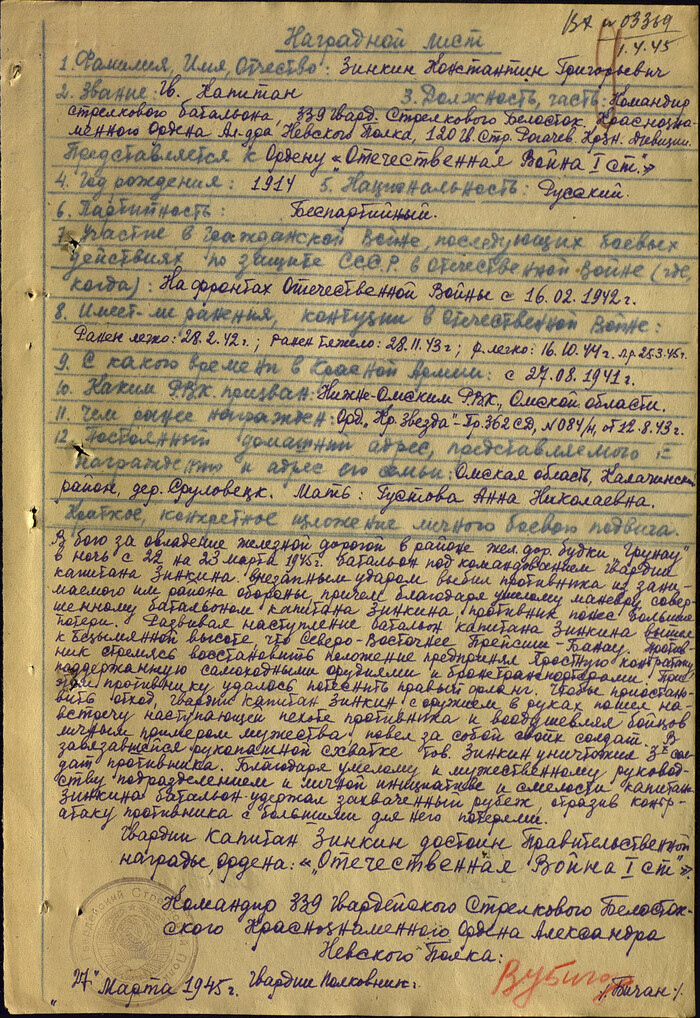 ВА № 03369
1.4.45
Наградной лист
1. Фамилия, Имя, Отчество: Зинкин Константин Григорьевич
2. Звание: Гв. Капитан 3. Должность, часть: Командир
стрелкового батальона, 339 Гвард. Стрелкового Белосток. Краснозна-
менного Ордена Ал-дра Невского Полка, 120 Гв. Стр. Рогачев. Крзн. дивизии.
Представляется к Ордену „Отечественная Война I ст."
4. Год рождения: 1914 5. Национальность: Русский.
6. Партийность: Беспартийный.
7. Участие в Гражданской Войне, последующих боевых
действиях по защите СССР в отечественной войне (где,
когда): На фронтах Отечественной Войны с 16.02.1942 г.
8. Имеет-ли ранения, контузии в отечественной Войне:
Ранен легко: 28.2.42 г.; ранен тяжело: 28.11.43 г; легко: 16.10.44 г.
9. С какого времени в Красной Армии: с 27.08.1941 г.
10. Каким РВК призван: Нижне-Омским РВК, Омской области.
11. Чем ранее награжден: Орд. „Кр. Звезда" - Пр 362 СД, N 084/н, от 12.8.43 г.
12. Постоянный домашний адрес, представляемого к
награждению и адрес его семьи: Омская область, Калачинский
район, дер. Мать: Густова Анна Николаевна.
Краткое, конкретное изложение личного боевого подвига.
В бою за овладение железной дорогой в районе жел. дор. будки „Грунау"
в ночь с 22 на 23 марта 1945 г. батальон под командованием гвардии
капитана Зинкина внезапным ударом выбил противника из зани-
маемого им района обороны, причем благодаря умелому маневру совер-
шенному батальоном капитана Зинкина противник понес большие
потери. Развивая наступление батальон капитана Зинкина вышел
к безымянной высоте, что Северо-Восточнее Прейсиш-Банау. Против-
ник стремясь восстановить положение предпринял яростную контратаку
поддержанную самоходными орудиями и бронетранспортерами. При
этом противнику удалось потеснить правый фланг. Чтобы приостано-
вить отход, гвардии капитан Зинкин с оружием в руках пошел на-
встречу наступающей пехоте противника и воодушевляя бойцов
личным примером мужества повел за собой своих солдат. В
завязавшейся рукопашной схватке тов. Зинкин уничтожил 3х сол-
дат противника. Благодаря умелому и мужественному руковод-
ству подразделением и личной инициативе и смелости капитана
Зинкина батальон удержал захваченный рубеж, отразив контр-
атаку противника с большими для него потерями.
Гвардии капитан Зинкин достоин Правительственной
награды, ордена: „Отечественная Война I ст".
Командир 339 Гвардейского Стрелкового Белосток-
ского Краснознаменного Ордена Александра
Невского Полка:
Гвардии Полковник: /Бичан/.
„27" Марта 1945 г.